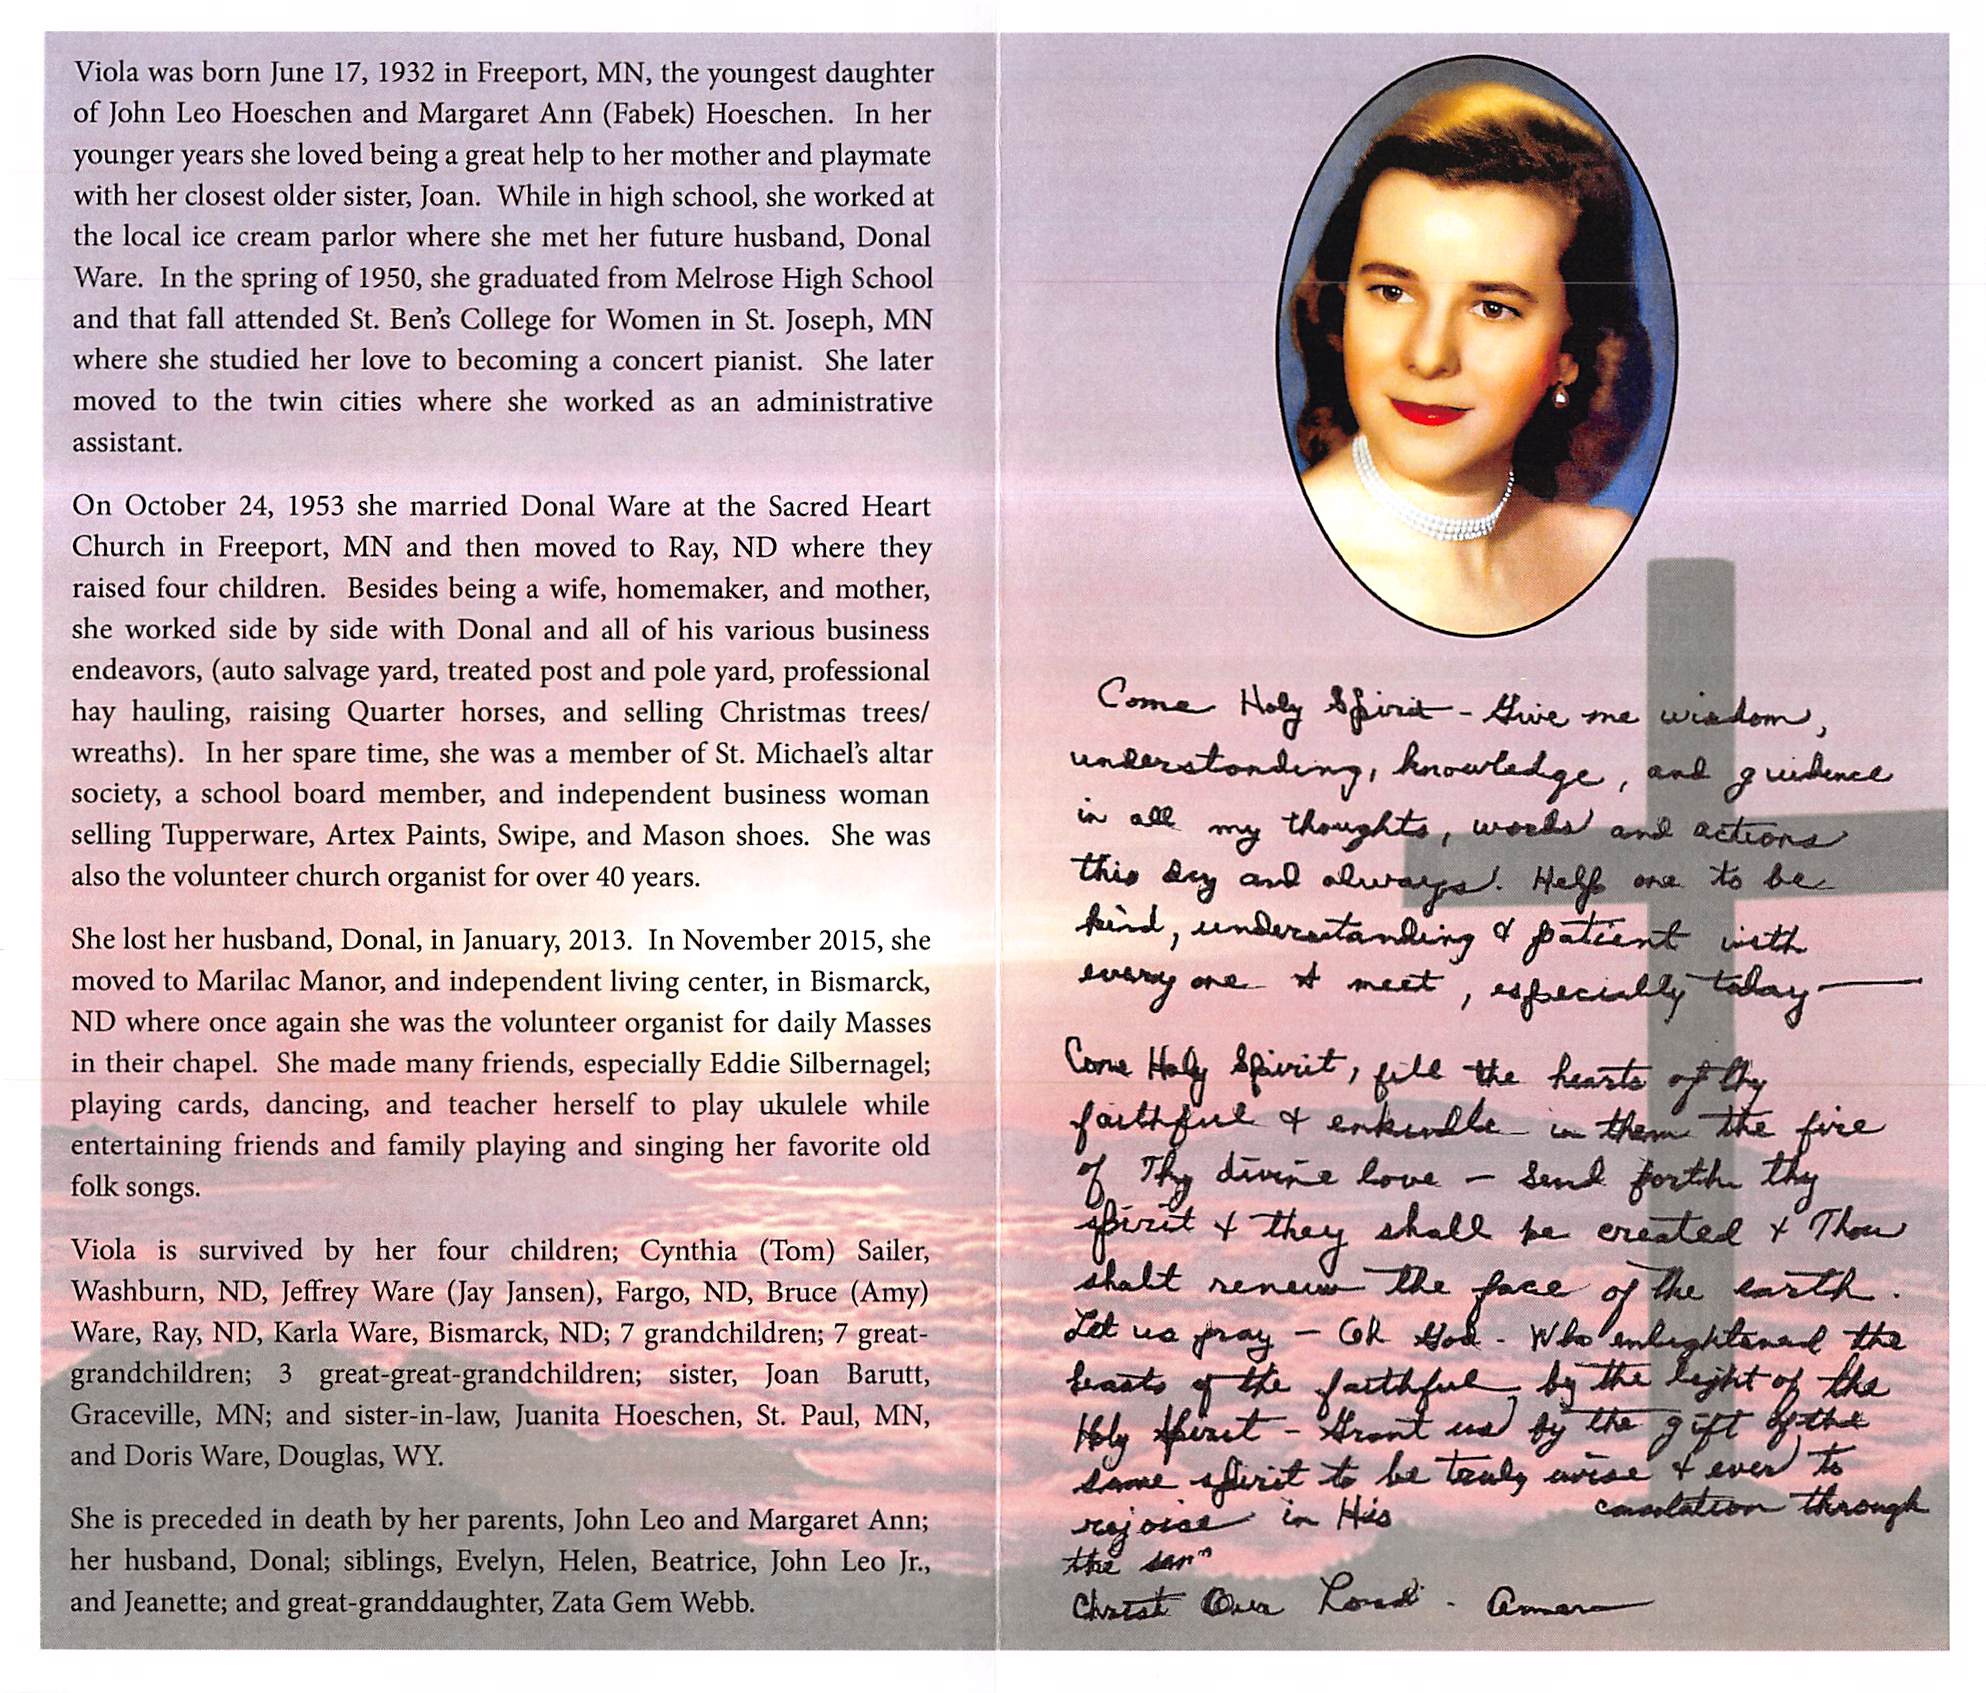 Viola was born June 17, 1932 in Freeport, MN, the youngest daughter
of John Leo Hoeschen and Margaret Ann (Fabek) Hoeschen. In her
younger years she loved being a great help to her mother and playmate
with her closest older sister, Joan. While in high school, she worked at
the local ice cream parlor where she met her future husband, Donal
Ware. In the spring of 1950, she graduated from Melrose High School
and that fall attended St. Ben's College for Women in St. Joseph, MN
where she studied her love to becoming a concert pianist. She later
moved to the twin cities where she worked as an administrative
assistant.
On October 24, 1953 she married Donal Ware at the Sacred Heart
Church in Freeport, MN and then moved to Ray, ND where they
raised four children. Besides being a wife, homemaker, and mother,
she worked side by side with Donal and all of his various business
endeavors, (auto salvage yard, treated post and pole yard, professional
hay hauling, raising Quarter horses, and selling Christmas trees/
wreaths). In her spare time, she was a member of St. Michael's altar
society, a school board member, and independent business woman
selling Tupperware, Artex Paints, Swipe, and Mason shoes. She was
also the volunteer church organist for over 40 years.
She lost her husband, Donal, in January, 2013. In November 2015, she
moved to Marilac Manor, and independent living center, in Bismarck,
ND where once again she was the volunteer organist for daily Masses
in their chapel. She made many friends, especially Eddie Silbernagel;
playing cards, dancing, and teacher herself to play ukulele while
entertaining friends and family playing and singing her favorite old
folk songs.
Viola is survived by her four children; Cynthia (Tom) Sailer,
Washburn, ND, Jeffrey Ware (Jay Jansen), Fargo, ND, Bruce (Amy)
Ware, Ray, ND, Karla Ware, Bismarck, ND; 7 grandchildren; 7 great-
grandchildren; 3 great-great-grandchildren; sister, Joan Barutt,
Graceville, MN; and sister-in-law, Juanita Hoeschen, St. Paul, MN,
and Doris Ware, Douglas, WY.
She is preceded in death by her parents, John Leo and Margaret Ann;
her husband, Donal; siblings, Evelyn, Helen, Beatrice, John Leo Jr.,
and Jeanette; and great-granddaughter, Zata Gem Webb.
Come Holy Spirit - Give me wisdom,
understanding, knowledge, and guidence
in all my thoughts, words and actions
this day and always. Help me to be
kind, understanding & patient with
every one I meet, especially today —
Come Holy Spirit, fill the hearts of thy
faithful & enkindle in them the fire
of Thy divine love - Send forth thy
spirit & they shall be created & Thou
shalt renew the face of the earth.
Let us pray - Oh God - Who enlightened the
hearts of the faithful, by the light of the
Holy Spirit - Grant us by the gift of the
same spirit to be truly wise & ever to
rejoice in His consolation through
the same
Christ Our Lord - Amen